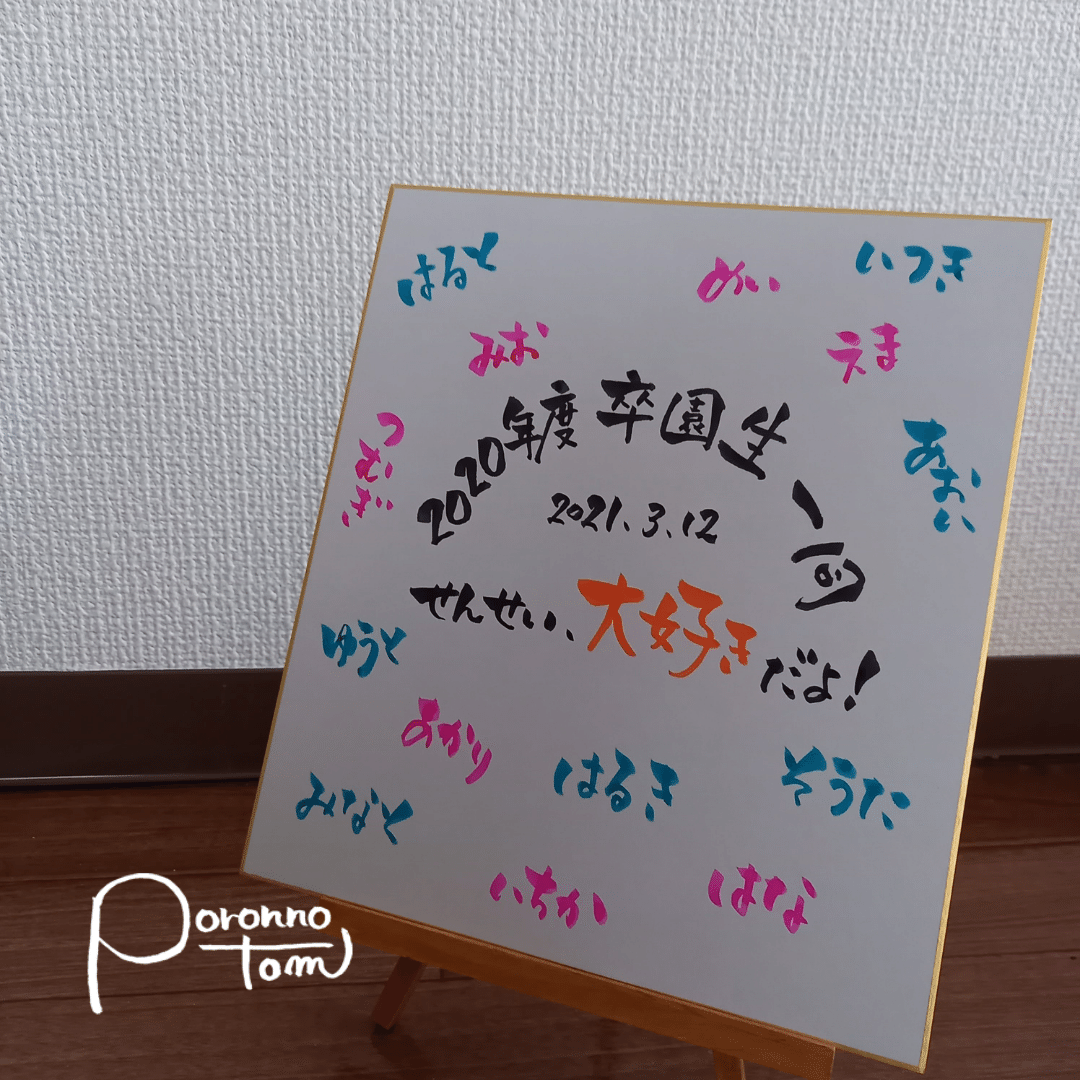 はると
めい
いつき
みお
えま
つむぎ
2020年度卒園生一同
あおい
2021.3.12
せんせい、大好きだよ!
ゆうと
あかり
はるき
そうた
みなと
いちか
はな
Poronno
Tom